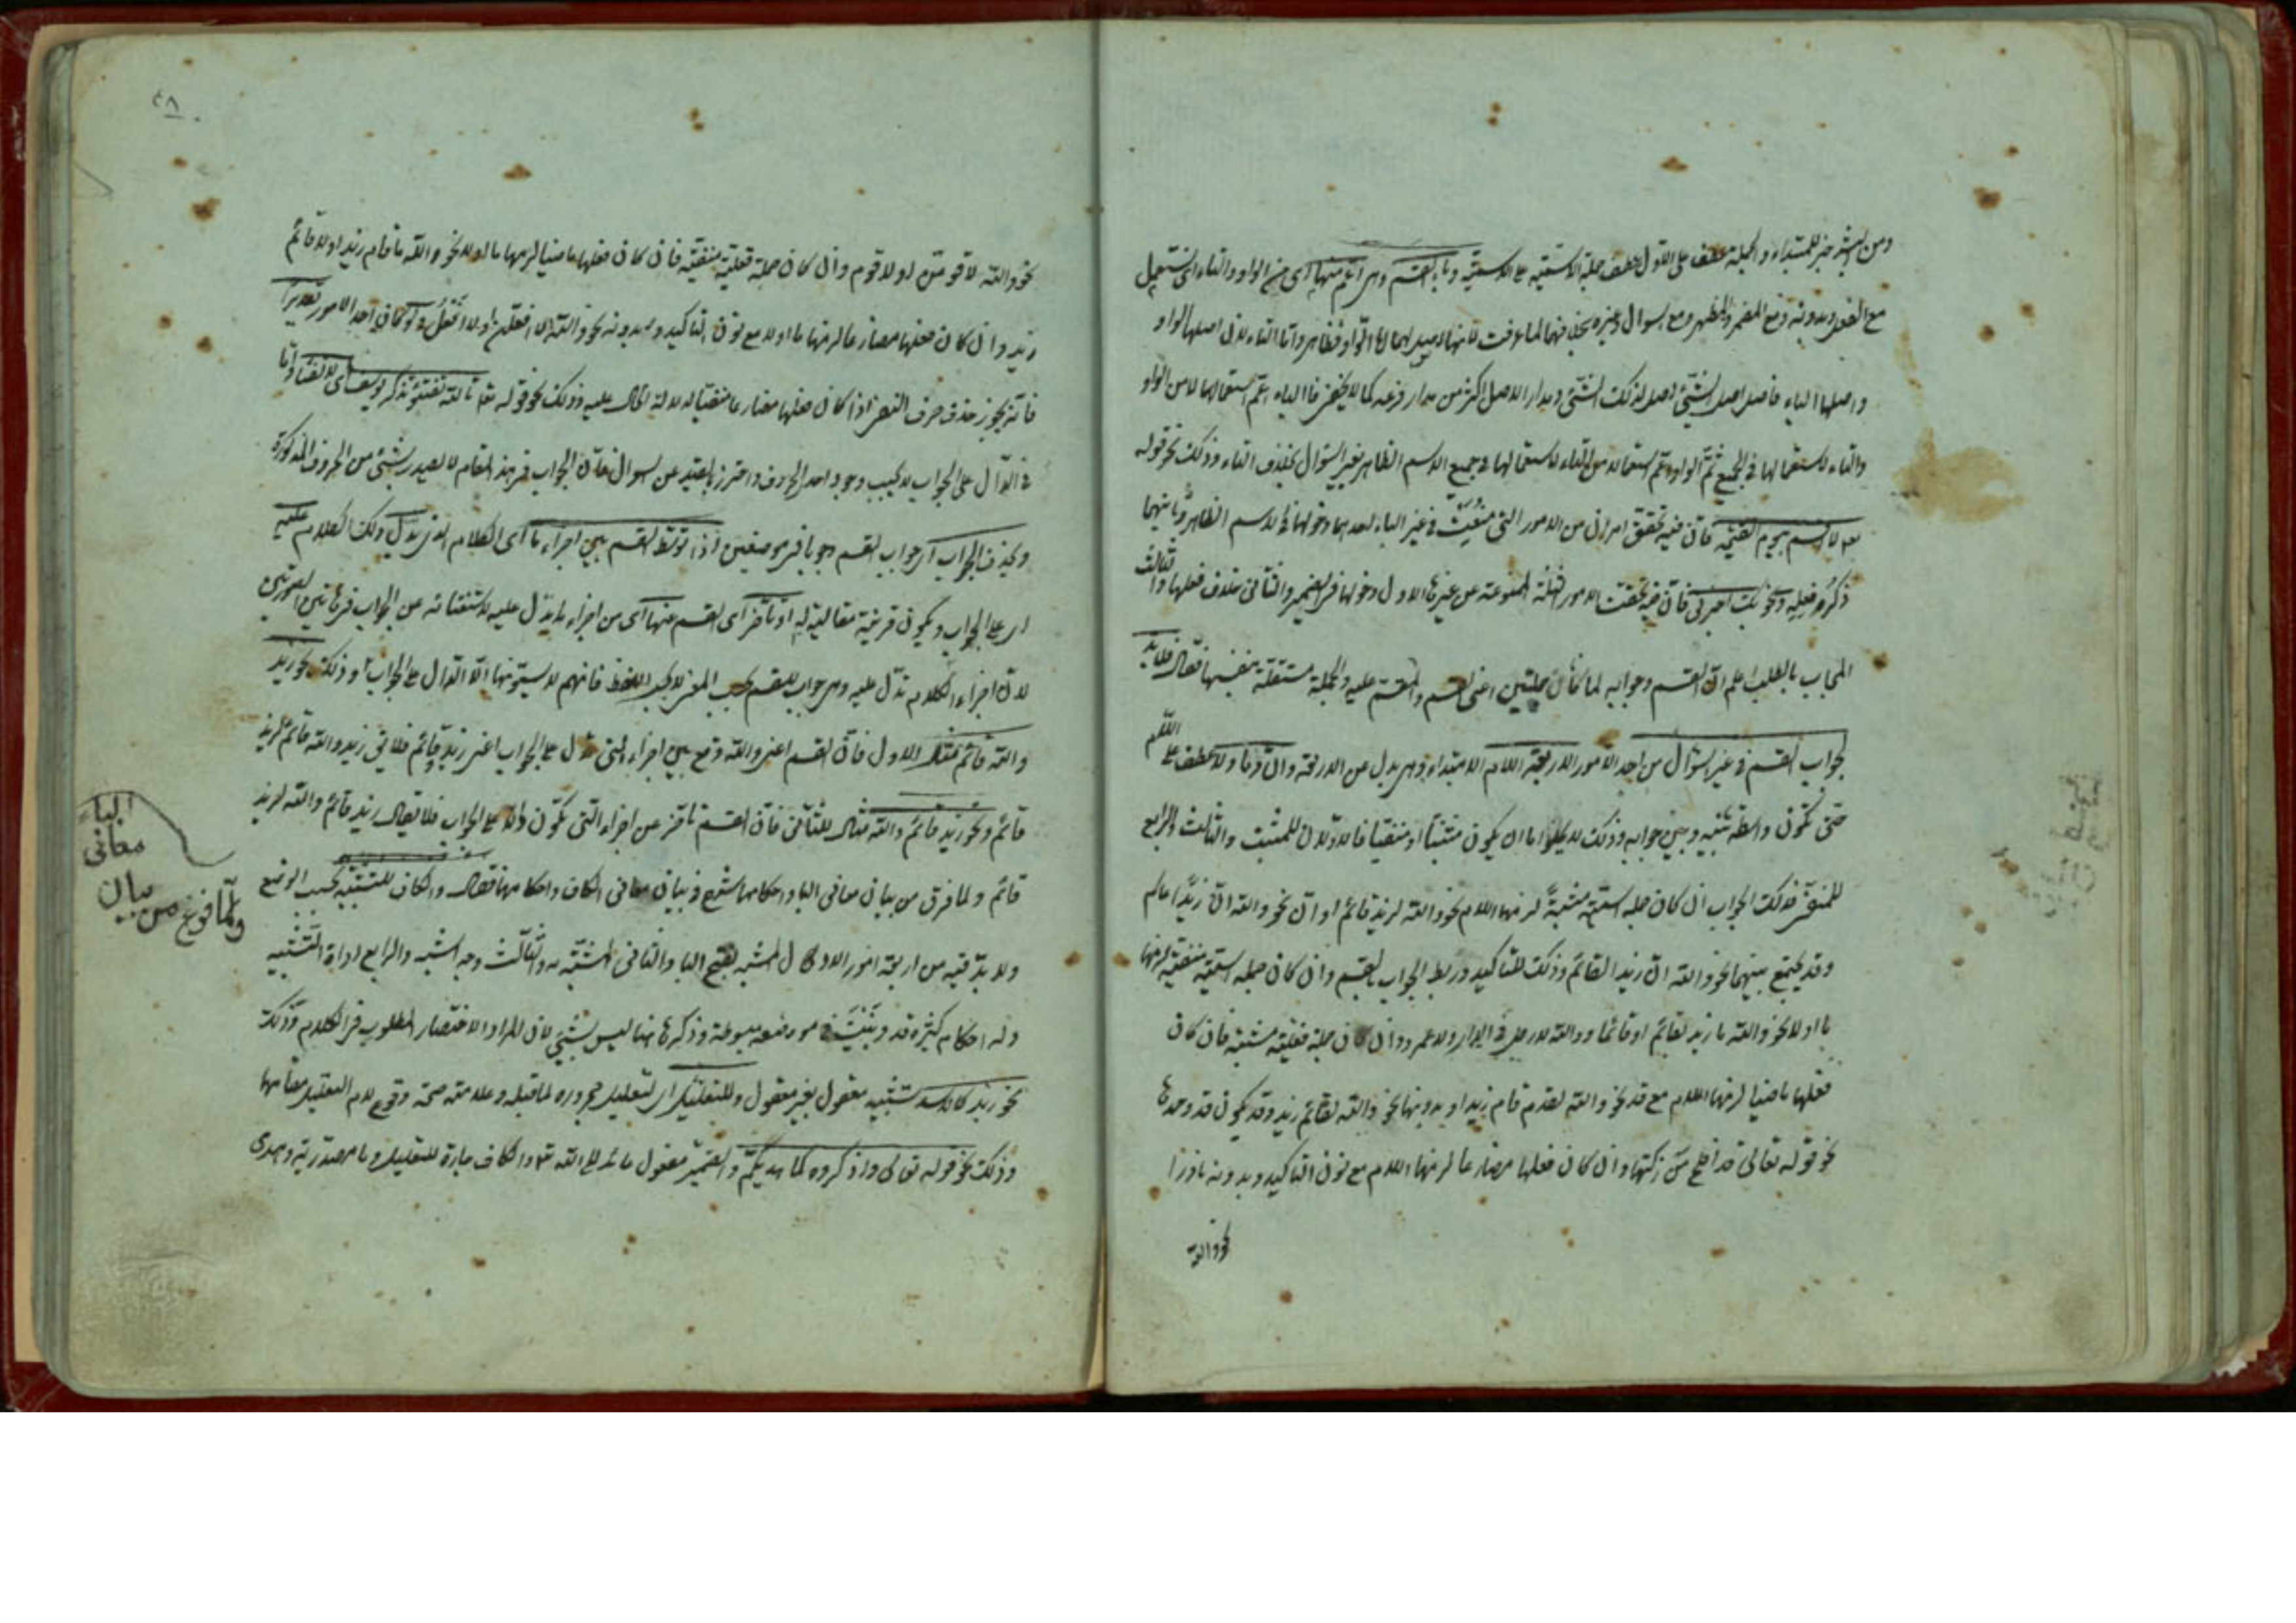 ومن البشر خبر للمبتداء والجملة عطف على الاول عطف جملة الاسمية على الاسمية وباء القسم وهى اعم منها اى من الواو والتاء اى تستعمل
مع الفعل وبدونه ومع المضمر والمظهر ومع السوال وغيره بخلافهما لما عرفت لانها الاصل لهما اما الواو فظاهر واما التاء فلان اصلها الواو
واصلها الباء فاصل اصل الشئ اصل لذلك الشئ ومدار الاصل اكثر من مدار فرعه كما لا يخفى فالباء اعم استعمالها من الواو
والتاء لاستعمالها فى الجميع ثم الواو اعم استعمالا من التاء لاستعمالها فى جميع الاسم الظاهر بغير السوال بخلاف التاء وذلك نحو قوله
لا اقسم بيوم القيمة فان فيه تحقق امران من الامور التى فى غير الباء احدهما دخولها فى الاسم الظاهر وثانيهما
ذكر فعله ونحو بك اخبرنى فان فيه تحققت الامور الثلثة الممنوعة عن غيرها الاول دخولها فى الضمير والثانى حذف فعلها والثالث
المجاب بالطلب اعلم ان القسم وجوابه لما كانا جملتين اعنى القسم والمقسم عليه والجملة مستقلة بنفسها فقال فلابد
لجواب القسم فى غير السؤال من احد الامور الاربعة اللام الابتداء وهى بدل من الاربعة وان وما ولا عطف على اللام
حتى تكون واسطة بينه وبين جوابه وذلك لا يخلو اما ان يكون مثبتا او منفيا فالاولان للمثبت والثالث والرابع
للمنفى فذلك الجواب ان كان جملة اسمية مثبتة لزمها اللام نحو والله لزيد قائم او ان نحو والله ان زيدا عالم
وقد يجتمع بينهما نحو والله ان زيدا لقائم وذلك للتاكيد وربط الجواب بالقسم وان كان جملة اسمية منفية لزمها
ما او لا نحو والله ما زيد بقائم او قائما ووالله لا رجل فى الدار ولا عمرو وان كان جملة فعلية مثبتة فان كان
فعلها ماضيا لزمها اللام مع قد نحو والله لقد قام زيد او بدونها نحو والله لقائم زيد وقد يكون قد وحدها
نحو قوله تعالى قد افلح من زكيها وان كان فعلها مضارعا لزمها اللام مع نون التاكيد وبدونه نادرا
نحو والله
٤٨
نحو والله لاقومن او لاقوم وان كان جملة فعلية منفية فان كان فعلها ماضيا لزمها ما او لا نحو والله ما قام زيد او لا قائم
زيد وان كان فعلها مضارعا لزمها ما او لا مع نون التاكيد وبدونه نحو والله لا افعلن او لا افعل ولو كان احد الامور تقديرا
فانه يجوز حذف حرف النفى اذا كان فعلها مضارعا منفيا لدلالة الحال عليه وذلك نحو قوله تعالى تالله تفتؤ تذكر يوسف اى لا تفتأ واما
فى الدال على الجواب لا يجب وجود احد الحروف واحترز بالقيد عن السوال فان الجواب فى هذا المقام لا يصدر بشئ من الحروف المذكورة
ويحذف الجواب اى جواب القسم وجوبا فى موضعين اذا توسط القسم بين اجزاء ما اى الكلام الذى يدل ذلك الكلام عليه
اى على الجواب ويكون قرينة مقالية له او تأخر اى القسم عنها اى من اجزاء ما يدل عليه لاستغنائه عن الجواب فى هاتين الصورتين
لان اجزاء الكلام تدل عليه وهى جواب للقسم بحسب المعنى لا بحسب اللفظ فانهم لا يسمونها الا الدال على الجواب وذلك نحو زيد
والله قائم مثال الاول فان القسم اعنى والله وقع بين اجزاء التى تدل على الجواب اعنى زيد قائم فلا يق زيد والله قائم لزيد
قائم ونحو زيد قائم والله مثال للثانى فان القسم تأخر عن اجزاء التى تكون دالة على الجواب فلا يقال زيد قائم والله لزيد
قائم ولما فرغ من بيان معانى البا واحكامها شرع فى بيان معانى الكاف واحكامها فقال والكاف للتشبيه بحسب الوضع
ولا بد فيه من اربعة امور الاول المشبه بفتح البا والثانى المشبه به والثالث وجه الشبه والرابع اداة التشبيه
وله احكام كثيرة قد بينت فى موضعه مبسوطة وذكرها هنا ليس بشئ لان المراد الاختصار المطلوب فى الكلام وذلك
نحو زيد كالاسد تشبيه معقول بغير معقول وللتعليل اى لتعليل مجروره لما قبله وعلامته صحة وقوع لام التعليل مقامها
وذلك نحو قوله تعالى واذكروه كما هديكم والضمير مفعول عائد الى الله تعالى والكاف جارة للتعليل وما مصدرية وهدى
ولما فرغ من بيان
معانى
الباء